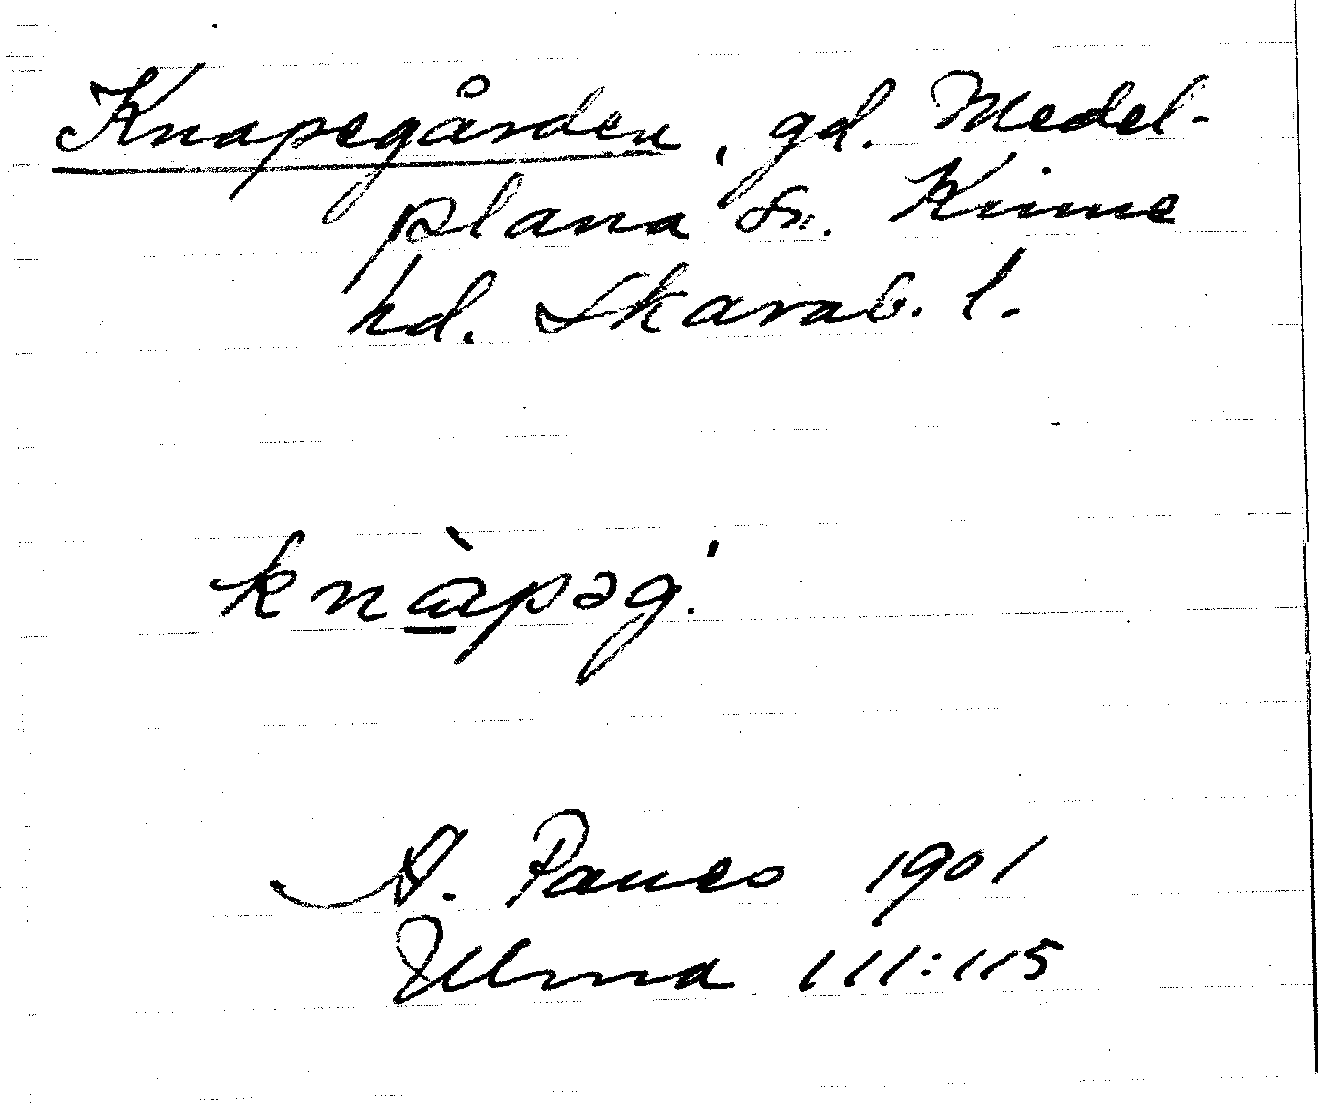 Knapegården, gd. Medel-
plana sn. Kinne
hd. Skarab. l.
knàpəg.'
A. Paues 1901
Ulma 111:115